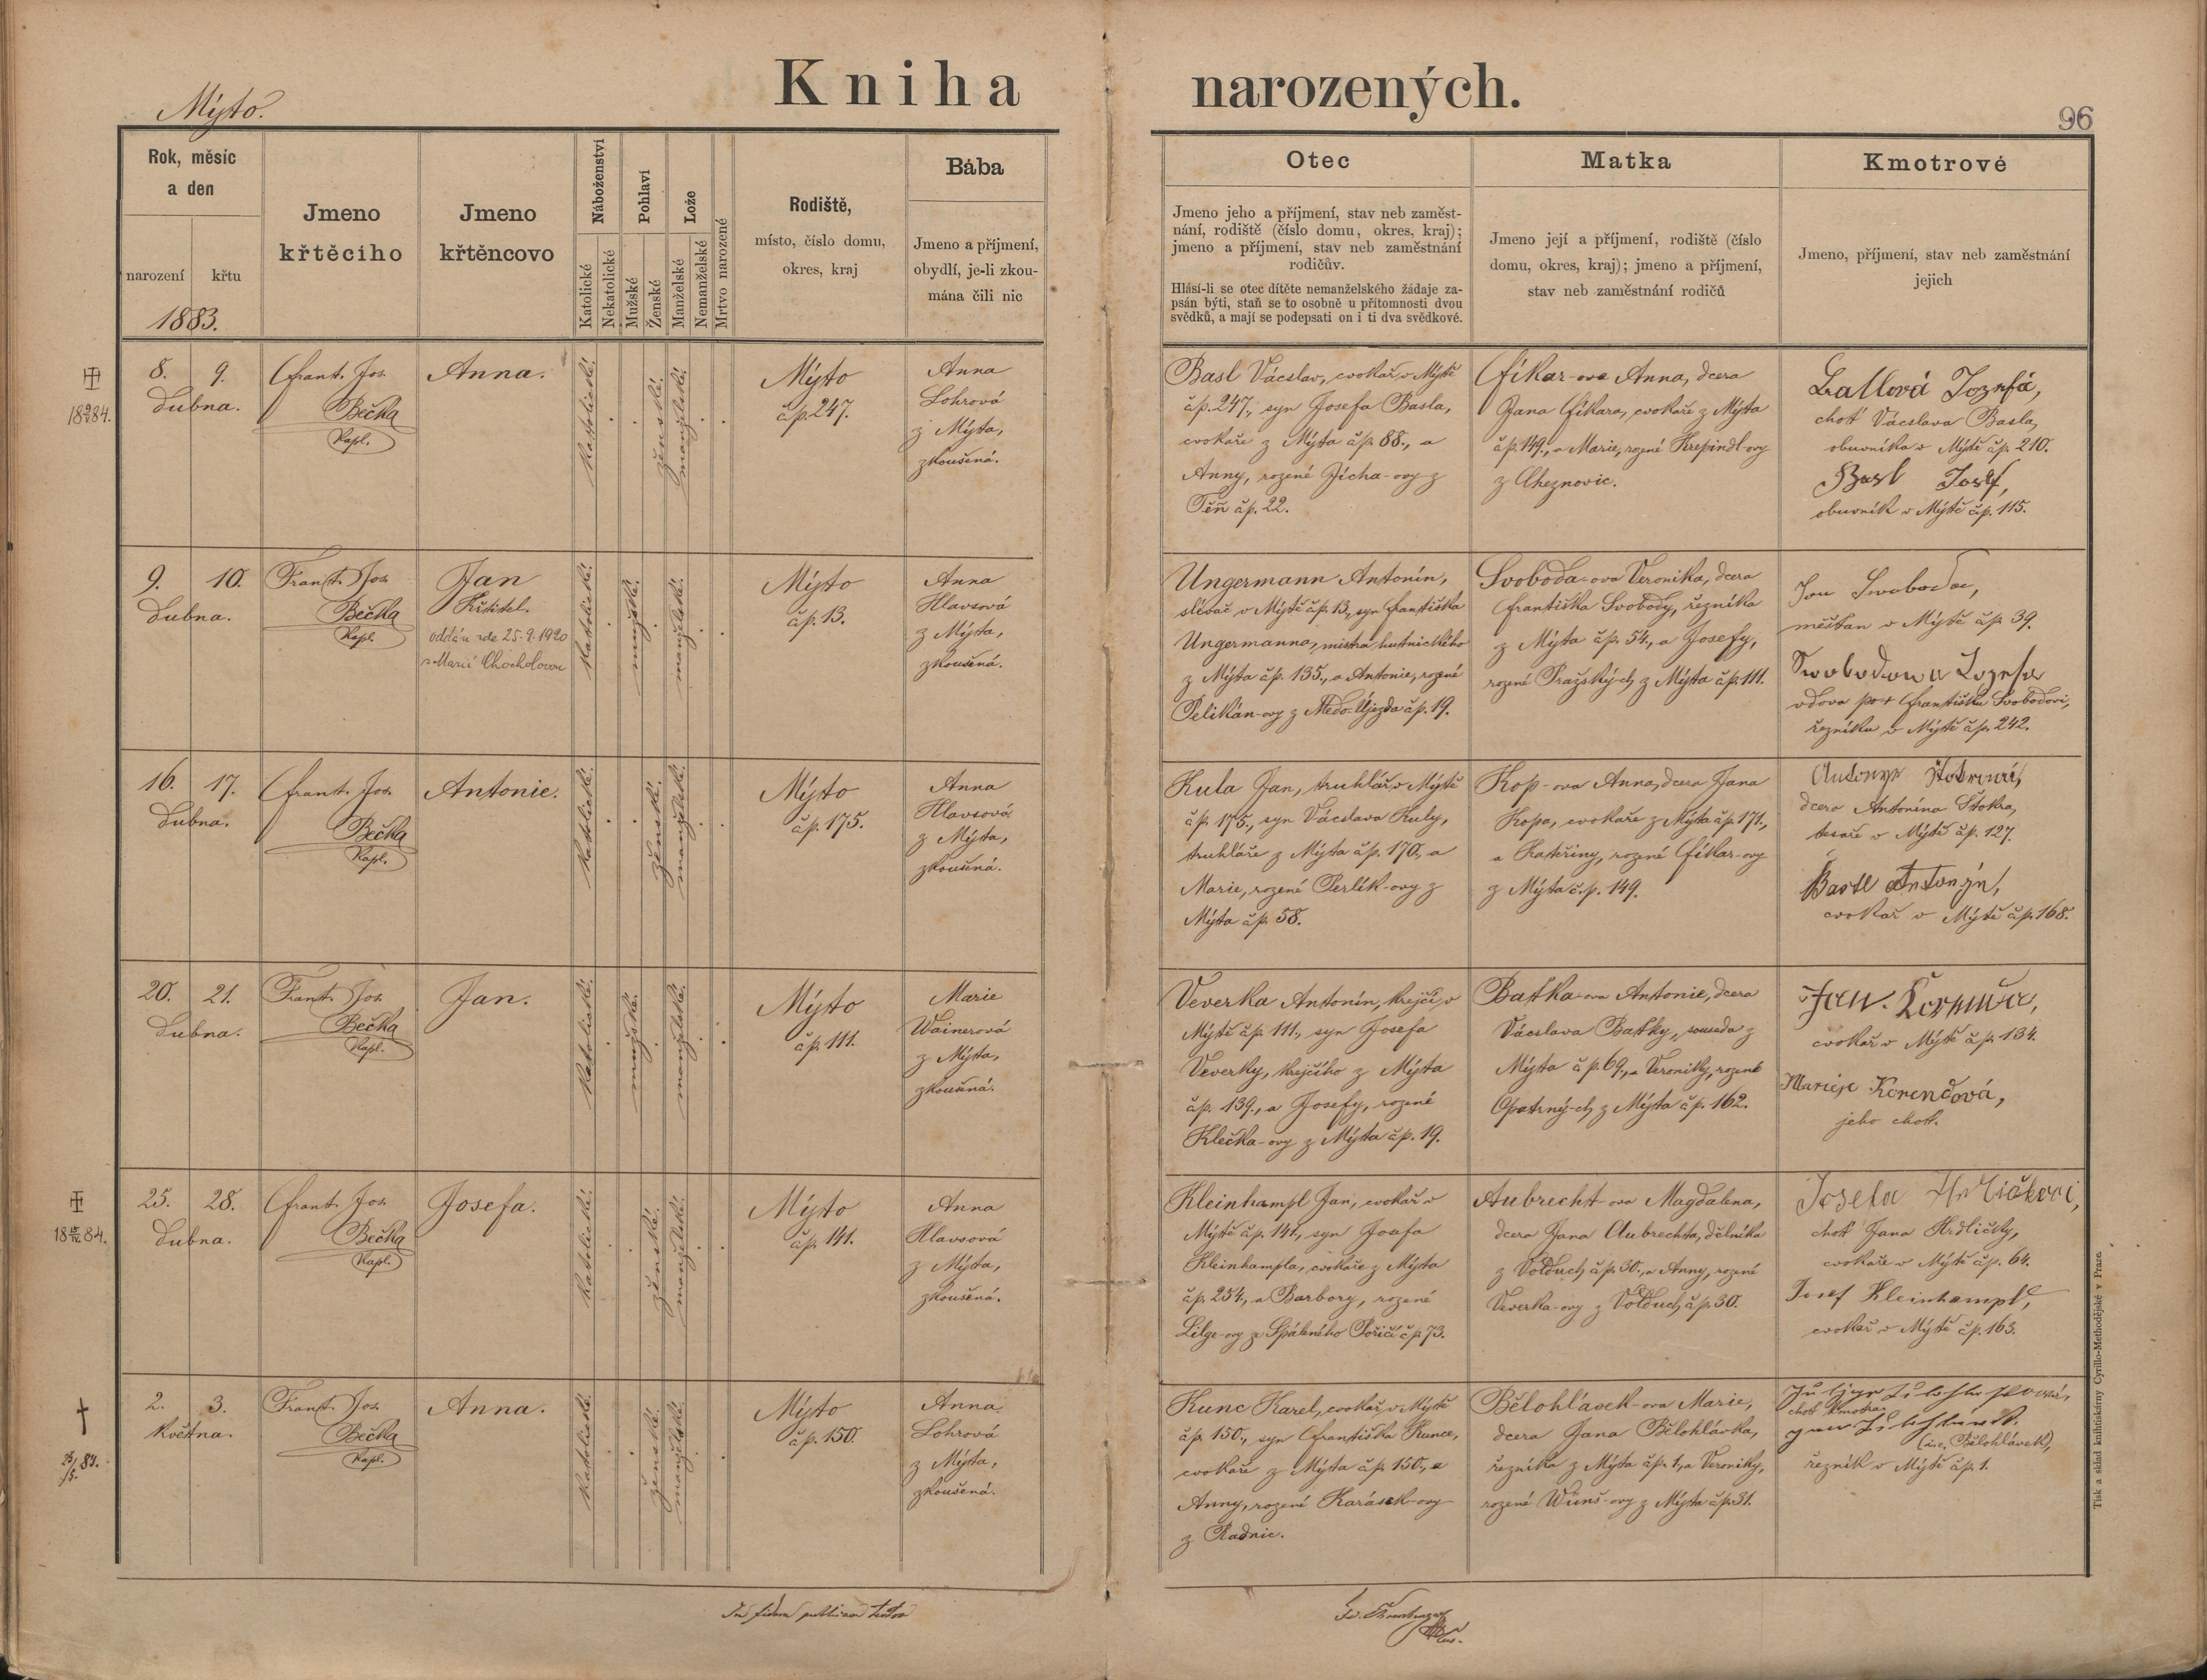 Kniha narozených.
Mýto.
96
Rok, měsíc
a den
narození
křtu
1883.
Jmeno
křtěcího
Jmeno
křtěncovo
Náboženství
Katolické
Nekatolické
Pohlaví
Mužské
Ženské
Lože
Manželské
Nemanželské
Mrtvo narozené
Rodiště,
místo, číslo domu,
okres, kraj
Bába
Jmeno a příjmení,
obydlí, je-li zkou-
mána čili nic
Otec
Jmeno jeho a příjmení, stav neb zaměst-
nání, rodiště (číslo domu, okres, kraj);
jmeno a příjmení, stav neb zaměstnání
rodičův.
Hlásí-li se otec dítěte nemanželského žádaje za-
psán býti, staň se to osobně u přítomnosti dvou
svědků, a mají se podepsati on i ti dva svědkové.
Matka
Jmeno její a příjmení, rodiště (číslo
domu, okres, kraj); jmeno a příjmení,
stav neb zaměstnání rodičů
Kmotrové
Jmeno, příjmení, stav neb zaměstnání
jejich
8. 9.
Dubna.
Frant. Jos.
Bečka
Kapl.
Anna.
katolické.
ženské.
manželské.
Mýto
čp. 247.
Anna
Lohrová
z Mýta,
zkoušená.
Basl Vácslav, cvokař v Mýtě
čp. 247., syn Josefa Basla,
cvokaře z Mýta čp. 88., a
Anny, rozené Jícha-ovy z
Těň čp. 22.
Fikar-ova Anna, dcera
Jana Fikara, cvokaře z Mýta
čp. 149., a Marie, rozené Krepindl-ovy
z Cheznovic.
Josefa,
choť Vácslava Basla,
obuvníka v Mýtě čp. 210.
Basl Josef,
obuvník v Mýtě čp. 115.
9. 10.
Dubna.
Frant. Jos.
Bečka
Kapl.
Jan
Křtitel.
oddán zde 25.9.1920
s Marií Chocholovou
katolické.
mužské.
manželské.
Mýto
čp. 13.
Anna
Hlavsová
z Mýta,
zkoušená.
Ungermann Antonín,
slévač v Mýtě čp. 13., syn Františka
Ungermanna, mistra hutnického
z Mýta čp. 135., a Antonie, rozené
Pelikán-ovy z Medo-Újezda čp. 19.
Svoboda-ova Veronika, dcera
Františka Svobody, řezníka
z Mýta čp. 54., a Josefy,
rozené Pražských z Mýta čp. 111.
Jan Swoboda,
měšťan v Mýtě čp. 39.
Swobodowa Jozefa
vdova po + Františku Svobodovi,
řezníku v Mýtě čp. 242.
16. 17.
Dubna.
Frant. Jos.
Bečka
Kapl.
Antonie.
katolické.
ženské.
manželské.
Mýto
čp. 175.
Anna
Hlavsová
z Mýta,
zkoušená.
Kula Jan, truhlář v Mýtě
čp. 175., syn Vácslava Kuly,
truhláře z Mýta čp. 170., a
Marie, rozené Perlík-ovy z
Mýta čp. 58.
Kop-ova Anna, dcera Jana
Kopa, cvokaře z Mýta čp. 171.,
a Kateřiny, rozené Fikar-ovy
z Mýta č.p. 149.
dcera Antonína Štokra,
tesaře v Mýtě čp. 127.
Antonýn,
cvokař v Mýtě čp. 168.
20. 21.
Dubna.
Frant. Jos.
Bečka
Kapl.
Jan.
katolické.
mužské.
manželské.
Mýto
čp. 111.
Marie
Wainerová
z Mýta,
zkoušená.
Veverka Antonín, krejčí v
Mýtě čp. 111., syn Josefa
Veverky, krejčího z Mýta
čp. 139., a Josefy, rozené
Klečka-ovy z Mýta čp. 19.
Baťka-ova Antonie, dcera
Vácslava Baťky, souseda z
Mýta čp. 69., a Veroniky, rozené
Opatrných z Mýta čp. 162.
Jan
cvokař v Mýtě čp. 134.
Korendová,
jeho choť.
25. 28.
Dubna.
Frant. Jos.
Bečka
Kapl.
Josefa.
katolické.
ženské.
manželské.
Mýto
čp. 141.
Anna
Hlavsová
z Mýta,
zkoušená.
Kleinhampl Jan, cvokař v
Mýtě čp. 141., syn Josefa
Kleinhampla, cvokaře z Mýta
čp. 254., a Barbory, rozené
Lilge-ovy ze Spáleného Poříčí čp. 73.
Aubrecht-ova Magdalena,
dcera Jana Aubrechta, dělníka
z Volduch čp. 30., a Anny, rozené
Veverka-ovy z Volduch čp. 30.
Josefa
choť Jana Hrdličky,
cvokaře v Mýtě čp. 64.
Josef Kleinhampl,
cvokař v Mýtě čp. 163.
2. 3.
Května.
Frant. Jos.
Bečka
Kapl.
Anna.
katolické.
ženské.
manželské.
Mýto
čp. 150.
Anna
Lohrová
z Mýta,
zkoušená.
Kunc Karel, cvokař v Mýtě
čp. 150., syn Františka Kunce,
cvokaře z Mýta čp. 150., a
Anny, rozené Karásek-ovy
z Radnic.
Bělohlávek-ova Marie,
dcera Jana Bělohlávka,
řezníka z Mýta čp. 1., a Veroniky,
rozené Wünš-ovy z Mýta čp. 31.
choť kmotra.
(i.e. Bělohlávek),
řezník v Mýtě čp. 1.
In fidem publicam
Tisk a sklad knihtiskárny Cyrillo-Methodějské v Praze.